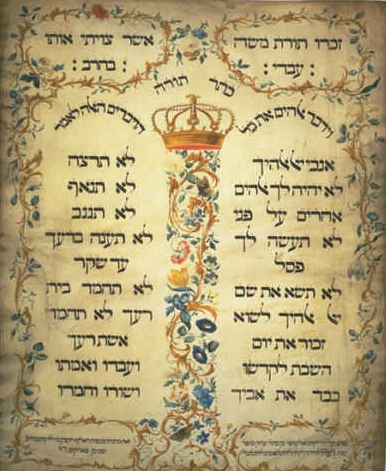 זכרו תורת משה
: עבדי :
אשר צויתי אותו
: בהרב :
כתר תורה
וידבר אלהים את כל
אנכי יי אלהיך
לא יהיה לך אלהים
אחרים על פני
לא תעשה לך
פסל
לא תשא את שם
יי אלהיך לשוא
זכור את יום
השבת לקדשו
כבד את אביך
הדברים האלה לאמר
לא תרצח
לא תנאף
לא תגנב
לא תענה ברעך
עד שקר
לא תחמד בית
רעך לא תחמד
אשת רעך
ועבדו ואמתו
ושורו וחמרו